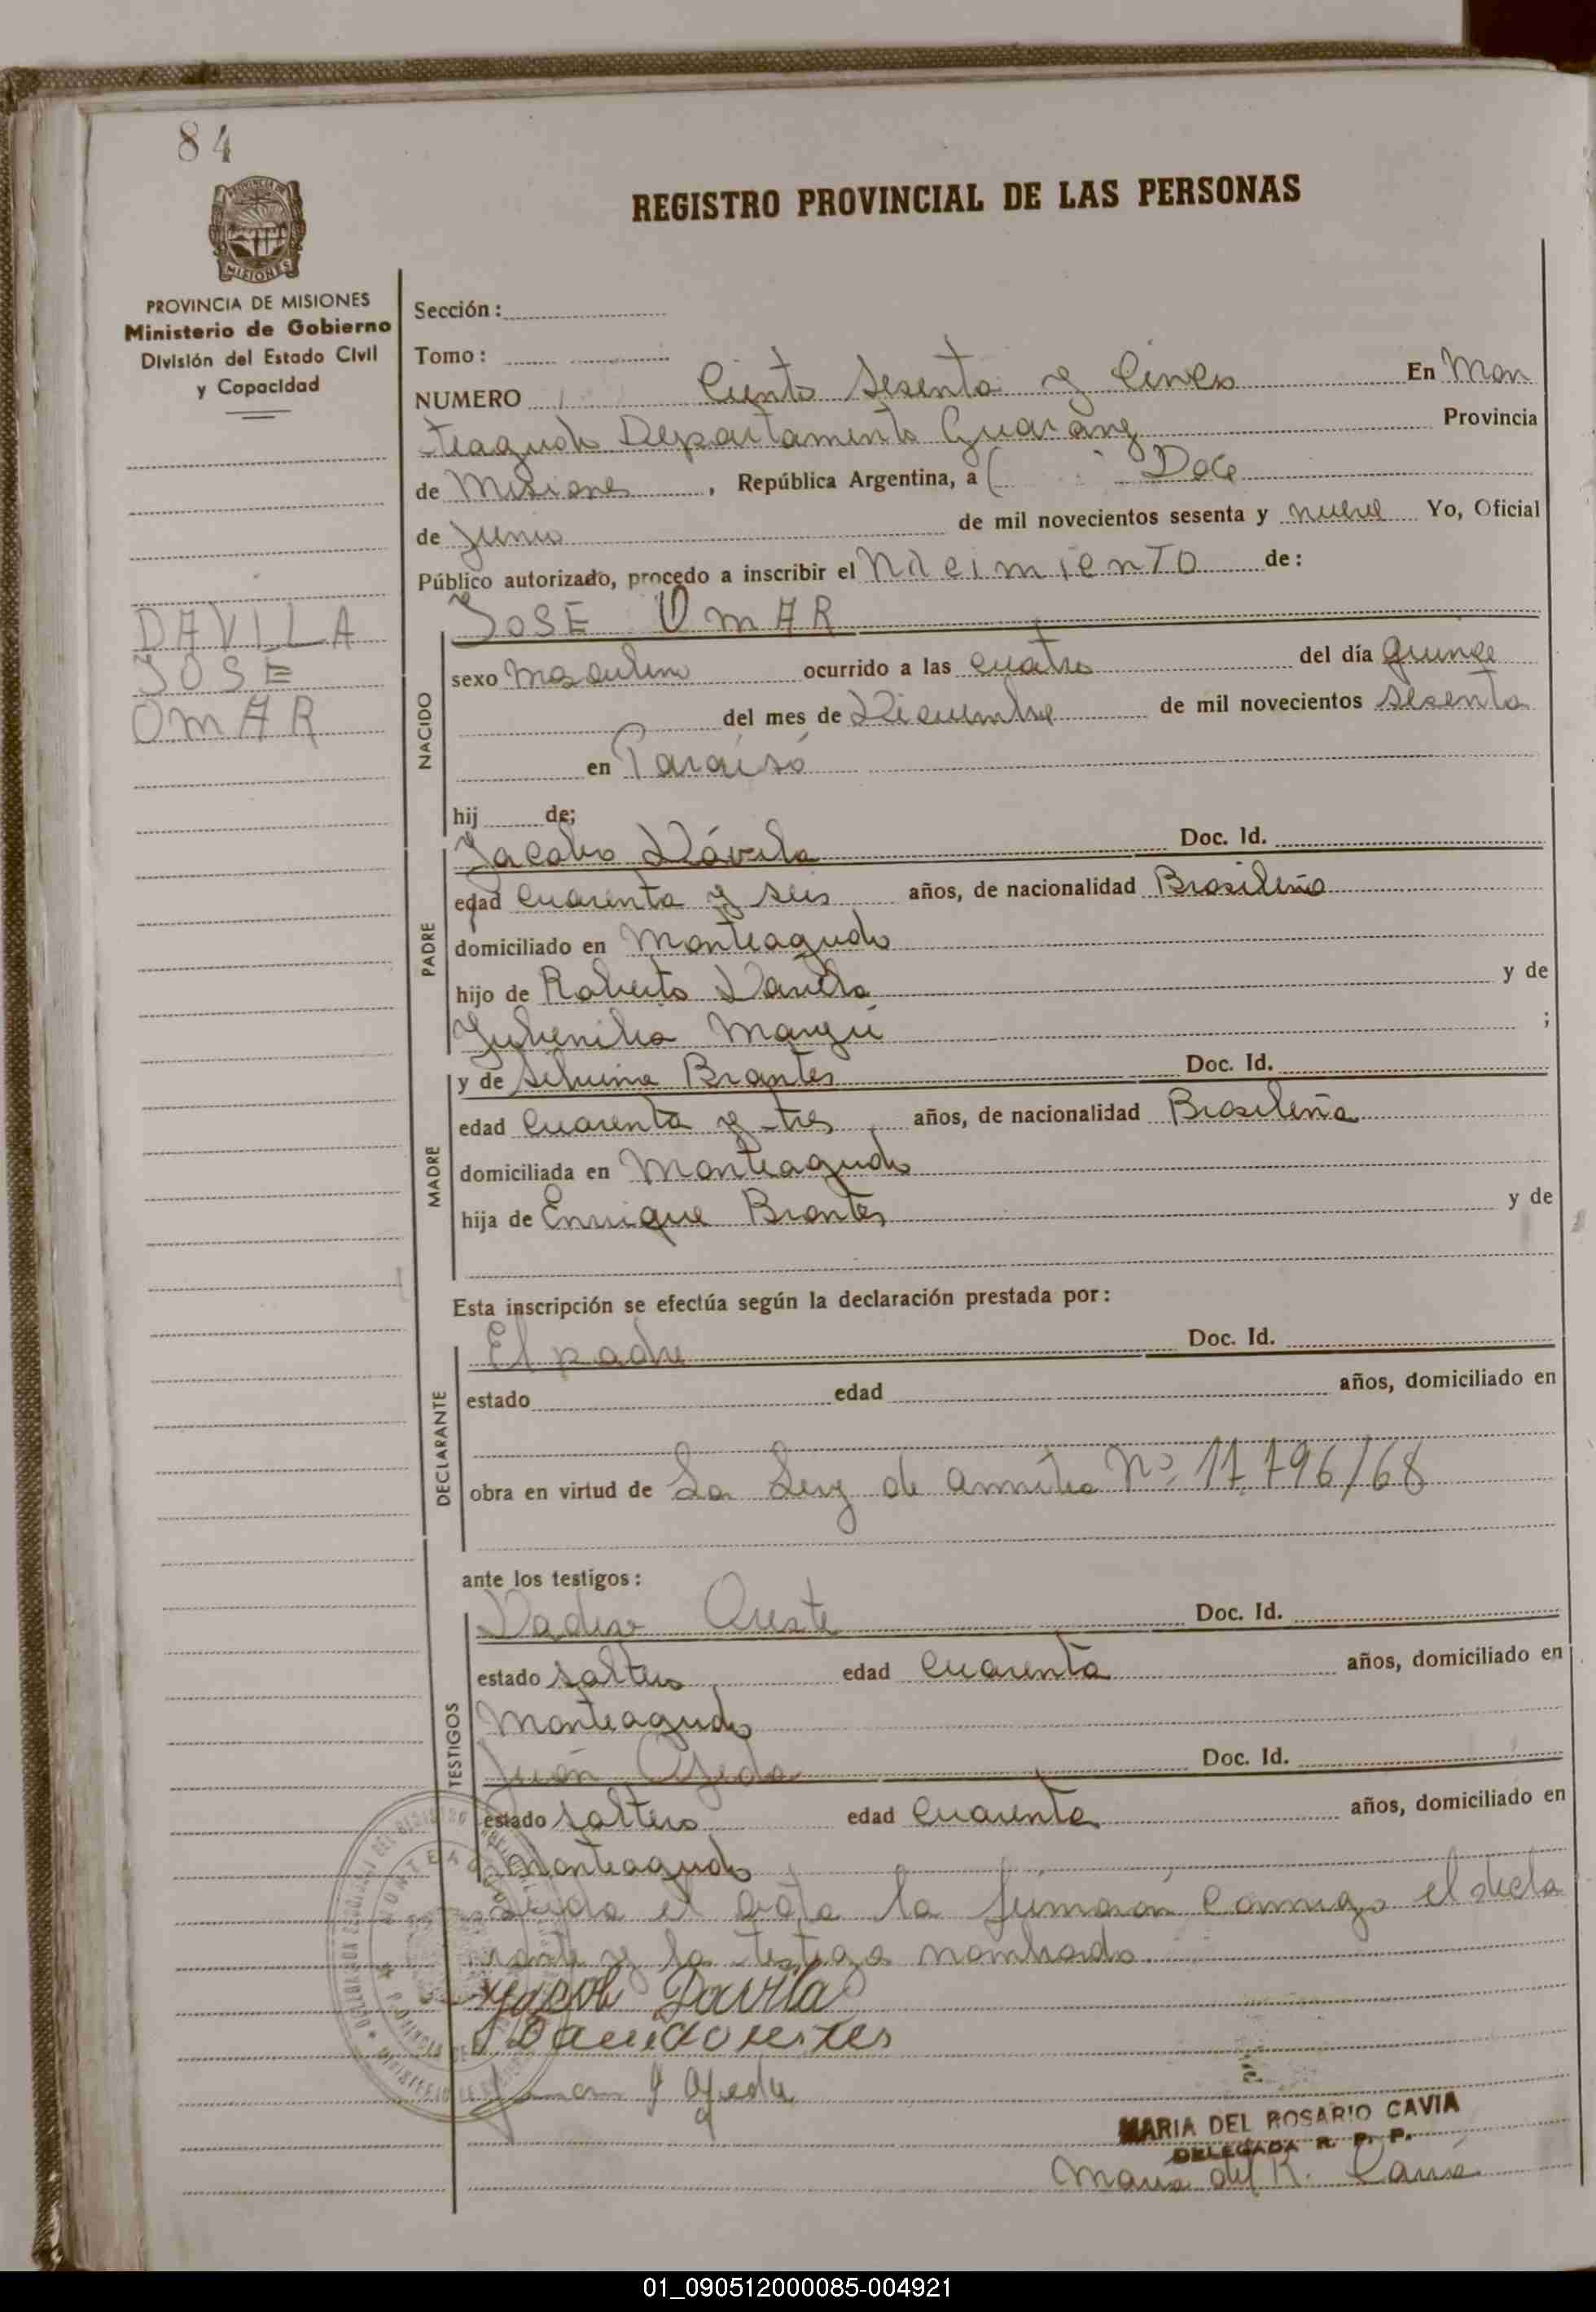 84
REGISTRO PROVINCIAL DE LAS PERSONAS
PROVINCIA DE
MISIONES
PROVINCIA DE MISIONES
Ministerio de Gobierno
División del Estado Civil
y Capacidad
DAVILA
JOSE
OMAR
Sección:
Tomo:
NUMERO Ciento Sesenta y Cinco En Mon
teagudo Departamento Guarany Provincia
de Misiones, República Argentina, a Doce
de Junio de mil novecientos sesenta y nueve Yo, Oficial
Público autorizado, procedo a inscribir el Nacimiento de:
NACIDO
JOSE OMAR
sexo Masculino ocurrido a las cuatro del día quince
del mes de Diciembre de mil novecientos sesenta
en Paraíso
hij de;
PADRE
Jacobo Dávila Doc. Id.
edad cuarenta y seis años, de nacionalidad Brasileño
domiciliado en Monteagudo
hijo de Roberto Davila y de
;
MADRE
y de Brantes Doc. Id.
edad cuarenta y tres años, de nacionalidad Brasileña
domiciliada en Monteagudo
hija de Enrique Brantes y de
Esta inscripción se efectúa según la declaración prestada por:
DECLARANTE
El padre Doc. Id.
estado edad años, domiciliado en
obra en virtud de La Ley de Nº 17.796/68
ante los testigos:
TESTIGOS
Doc. Id.
estado soltero edad cuarenta años, domiciliado en
Monteagudo
Juan Ojeda Doc. Id.
estado soltero edad cuarenta años, domiciliado en
Monteagudo
el acta la firman comigo el decla
rante y los testigos nombrado
Jacob Davila
Ojeda
MARIA DEL ROSARIO CAVIA
DELEGADA R. P. P.
Maria del R. Cavia
01_090512000085-004921